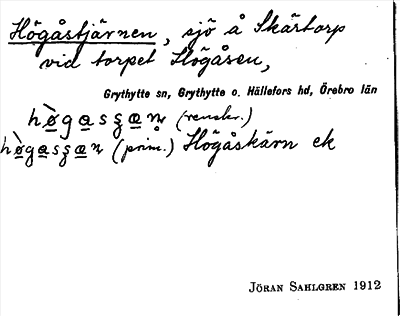 Högåstjärnen, sjö å Skärtorp
vid torpet Högåsen,
Grythytte sn, Grythytte o. Hällefors hd, Örebro län
(renskr.)
(prim.) Högåskärn ek
JÖRAN SAHLGREN 1912